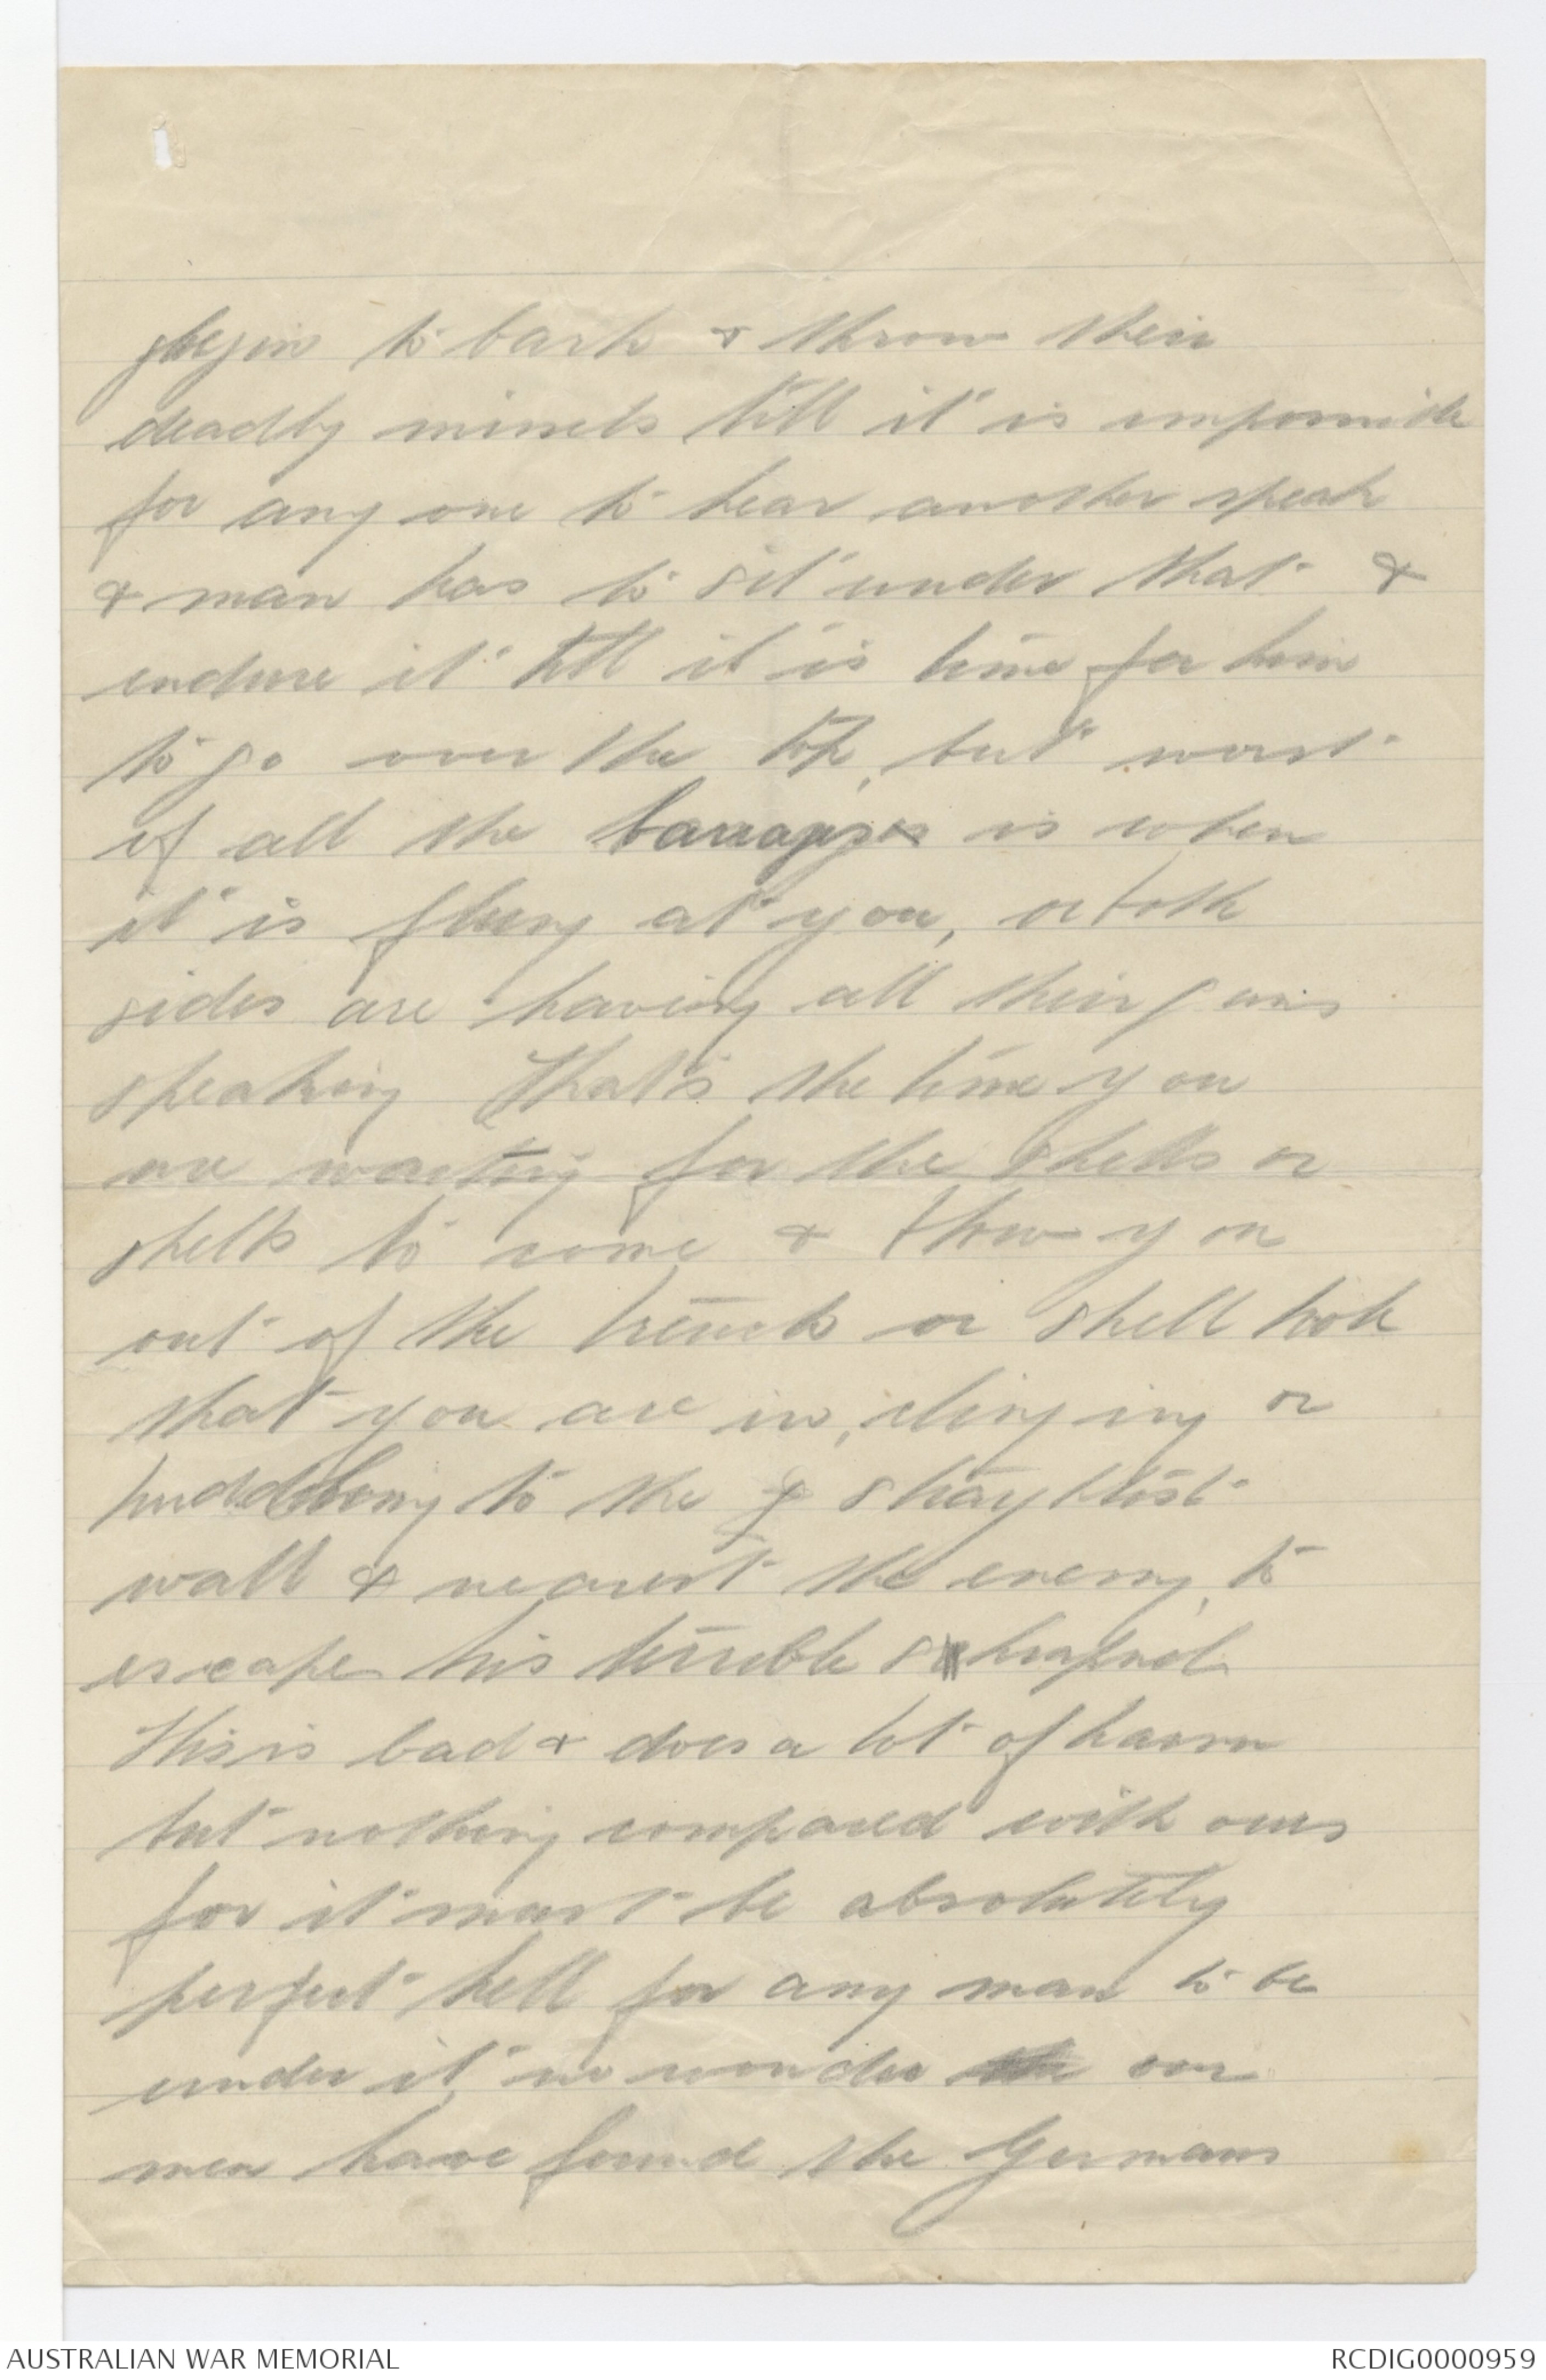 begin to bark & throw their
deadly missels till it is impossible
for any one to hear another speak
& man has to sit under that &
endure it till it is time for him
to go over the top, but worst
of all the barrages is when
it is flung at you, or both
sides are having all their guns
speaking That's the time you
are waiting for the shells or
shells to come & throw you
out of the trench or shell hole
that you are in, clinging or
huddling to the straightest
wall & nearest the enemy, to
escape his terrible shrapnel.
This is bad & does a lot of harm
but nothing compared with ours
for it must be absolutely
perfect hell for any man to be
under it, no wonder our
men have found the Germans
AUSTRALIAN WAR MEMORIAL
RCDIG0000959